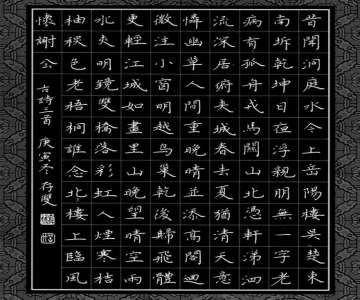 昔聞洞庭水今上岳陽樓吳楚東
南坼乾坤日夜浮親朋無一字老
病有孤舟戎馬關山北憑軒涕泗
流深居俯夾城春去夏猶清天意
憐幽草人間重晚晴並添高閣迥
微注小窗明越鳥巢乾後歸飛體
更輕江城如畫里山晚望晴空兩
水夾明鏡雙橋落彩虹人煙寒橘
柚秋色老梧桐誰念北樓上臨風
懷謝公 古詩三首 庚寅冬